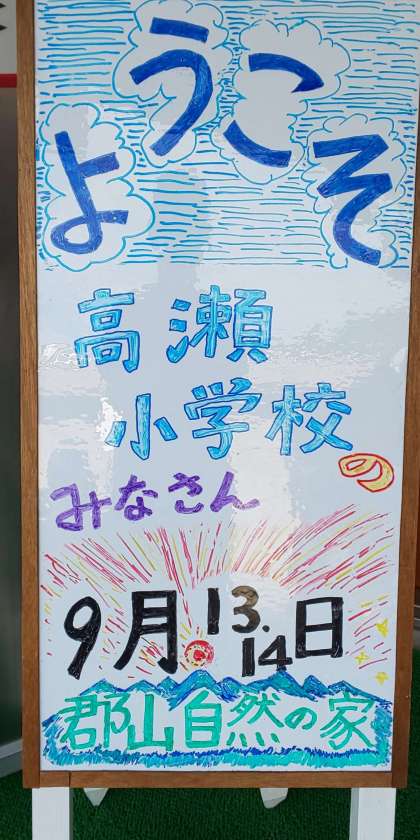 ようこそ
高瀬
小学校の
みなさん
9月13.14日
郡山自然の家